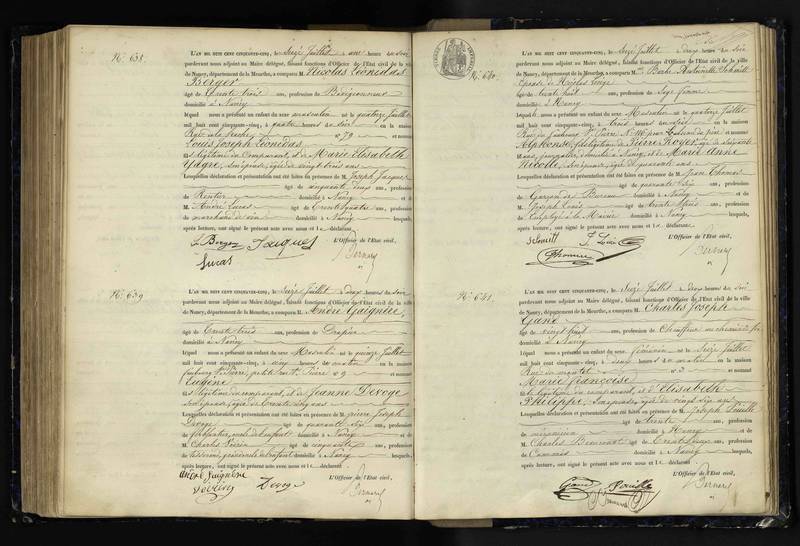 N.° 638.
L'AN MIL HUIT CENT CINQUANTE-CINQ, le Seize Juillet à une heure du soir
pardevant nous adjoint au Maire délégué, faisant fonctions d'Officier de l'Etat civil de la ville
de Nancy, département de la Meurthe, a comparu M. Nicolas Léonidas
Berger
âgé de trente trois ans, profession de
domicilié à Nancy
lequel nous a présenté un enfant du sexe masculin né le quatorze Juillet
mil huit cent cinquante-cinq, à quatre heures du soir en la maison
Rue de la n° 79 et nommé
Louis Joseph Léonidas
fils légitime du Comparant, et de Marie Elisabeth
son épouse, âgée de vingt trois ans
Lesquelles déclaration et présentation ont été faites en présence de M. Joseph Jacques
âgé de cinquante deux ans, profession
de Rentier domicilié à Nancy et de
M. André Lucas âgé de trente quatre ans, profession
de marchand de vin domicilié à Nancy lesquels,
après lecture, ont signé le présent acte avec nous et le déclarant
L. Berger Jacques L'Officier de l'Etat civil,
Lucas Bernard
N.° 639
L'AN MIL HUIT CENT CINQUANTE-CINQ, le Seize Juillet à deux heures du soir
pardevant nous adjoint au Maire délégué, faisant fonctions d'Officier de l'Etat civil de la ville
de Nancy, département de la Meurthe, a comparu M. André Gaignière,
âgé de trente trois ans, profession de Drapier
domicilié à Nancy
lequel nous a présenté un enfant du sexe Masculin né le quinze Juillet
mil huit cent cinquante-cinq, à cinq heures du matin en la maison
faubourg St. Pierre, petite rue St. Pierre n° 9 et nommé
Eugène
fils légitime du comparant, et de Jeanne Devoge
son épouse, âgée de trente cinq ans
Lesquelles déclaration et présentation ont été faites en présence de M. pierre Joseph
Devoge âgé de quarante six ans, profession
de domicilié à Nancy et de
M. Charles âgé de cinquante ans, profession
de domicilié à Nancy lesquels,
après lecture, ont signé le présent acte avec nous et le déclarant
andré Gaignière L'Officier de l'Etat civil,
Devoge Bernard
N.° 640.
L'AN MIL HUIT CENT CINQUANTE-CINQ, le Seize Juillet à deux heures du soir
pardevant nous adjoint au Maire délégué, faisant fonctions d'Officier de l'Etat civil de la ville
de Nancy, département de la Meurthe, a comparu M. Barbe Antoinette Schmitt
épouse de Nicolas
âgée de trente huit ans, profession de Sage femme
domiciliée à Nancy
lequel nous a présenté un enfant du sexe Masculin né le quatorze Juillet
mil huit cent cinquante-cinq, à trois heures du soir en la maison
Rue du faubourg St. Pierre N° et nommé
Alphonse, fils légitime de Pierre Royer, âgé de soixante
ans, domicilié à Nancy, et de Marie Anne
son épouse, âgée de quarante ans
Lesquelles déclaration et présentation ont été faites en présence de M. Jean Thomas
âgé de quarante six ans, profession
de Garçon de Bureau domicilié à Nancy et de
M. Joseph âgé de trente trois ans, profession
de Employé à la Mairie domicilié à Nancy lesquels,
après lecture, ont signé le présent acte avec nous et la déclarante
Schmitt L'Officier de l'Etat civil,
Thomas Bernard
N.° 641.
L'AN MIL HUIT CENT CINQUANTE-CINQ, le Seize Juillet à deux heures du soir
pardevant nous adjoint au Maire délégué, faisant fonctions d'Officier de l'Etat civil de la ville
de Nancy, département de la Meurthe, a comparu M. Charles Joseph
Gand
âgé de vingt huit ans, profession de Chauffeur au chemin de fer
domicilié à Nancy
lequel nous a présenté un enfant du sexe féminin né le Seize Juillet
mil huit cent cinquante-cinq, à deux heures du matin en la maison
Rue de n° 3 et nommé
Marie Françoise
fille légitime du comparant et d'Elisabeth
Philippe, son épouse, âgée de vingt six ans
Lesquelles déclaration et présentation ont été faites en présence de M. Joseph
âgé de trente ans, profession
de mécanicien domicilié à Nancy et de
M. Charles âgé de trente ans, profession
de Commis domicilié à Nancy lesquels,
après lecture, ont signé le présent acte avec nous et le déclarant
Gand L'Officier de l'Etat civil,
Bernard